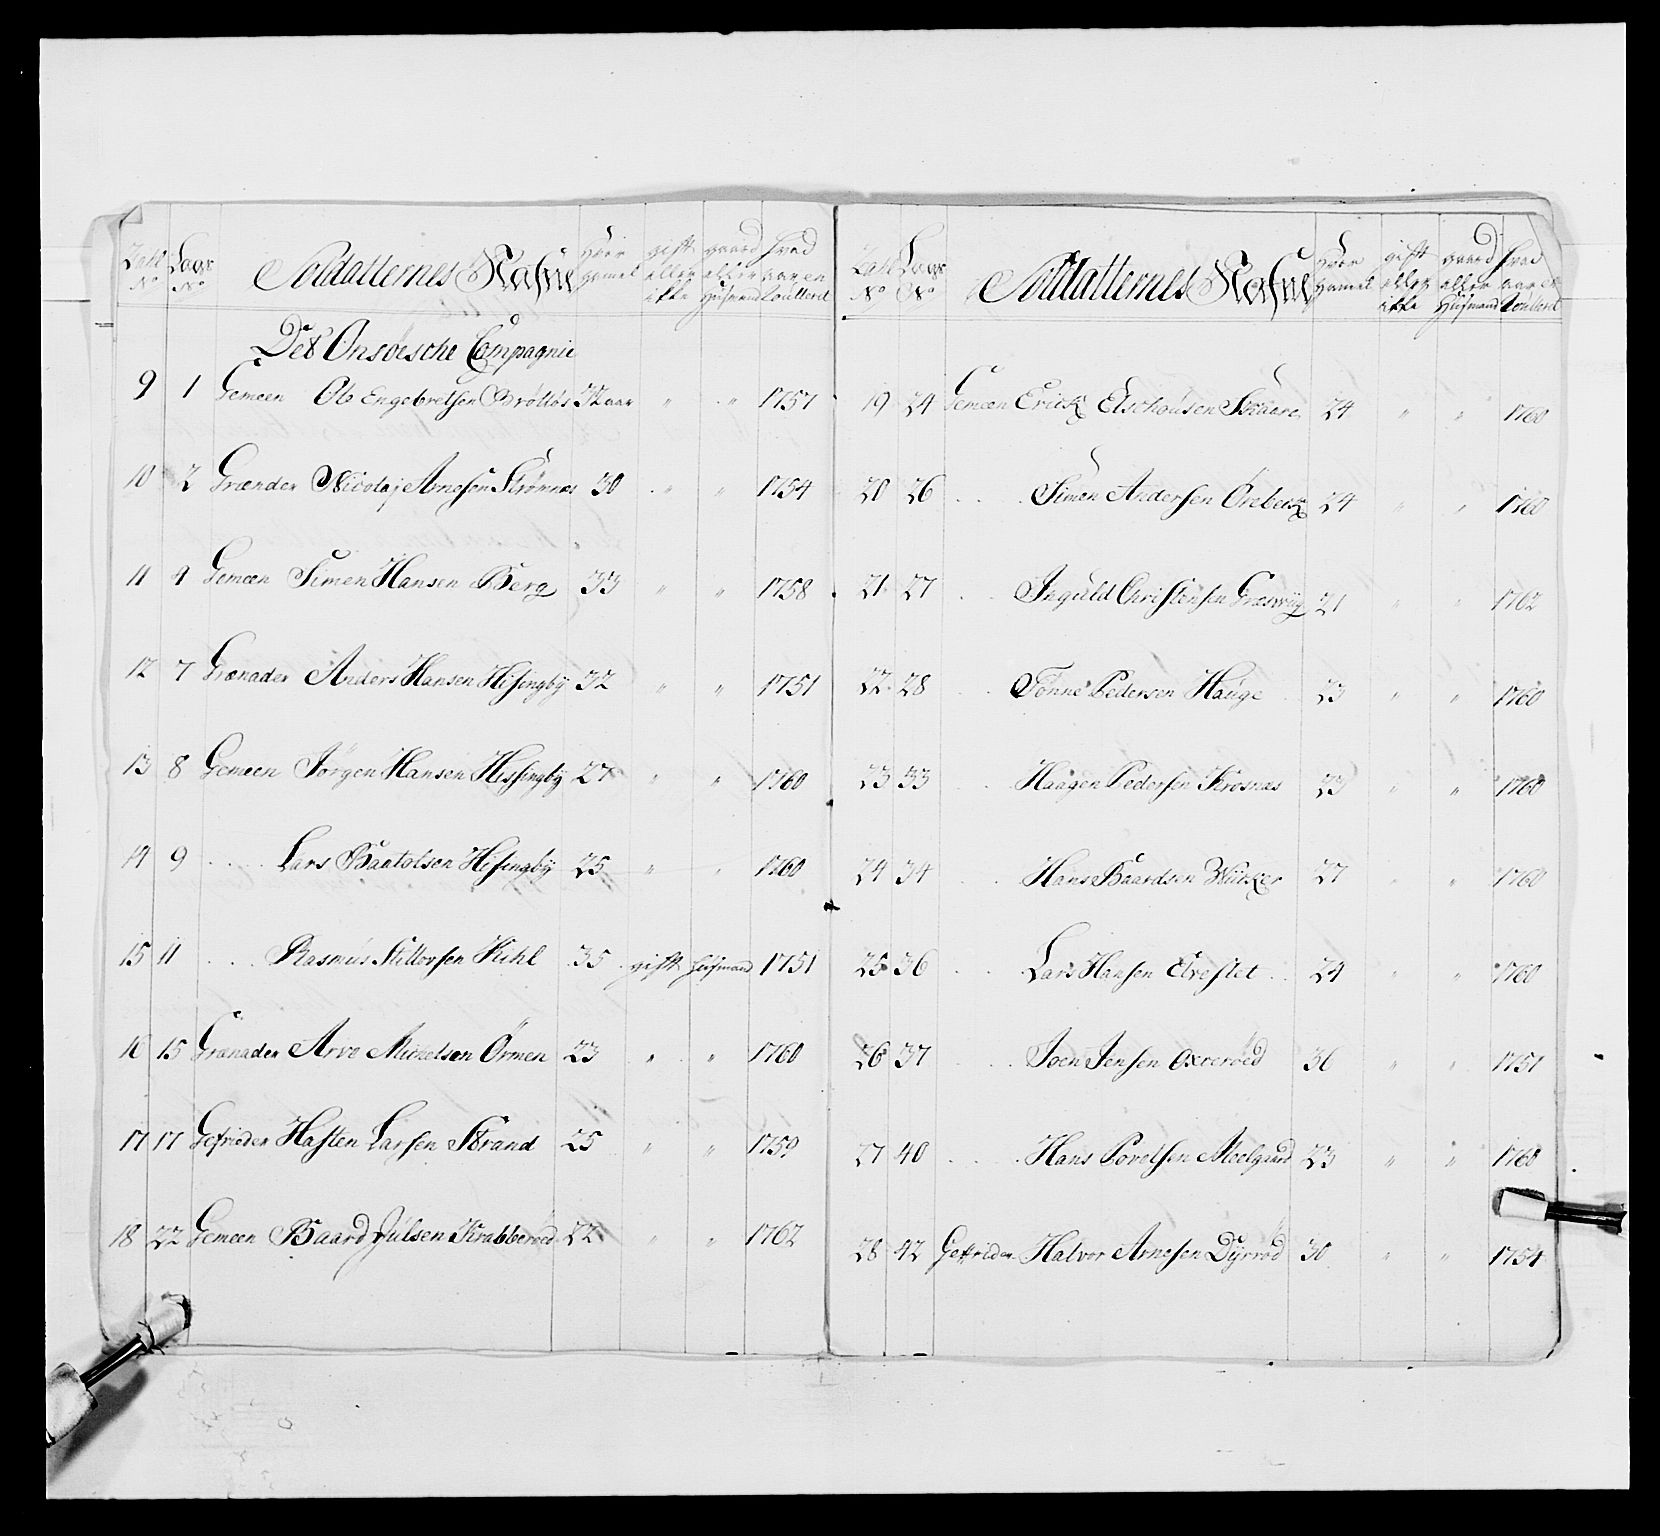 Tahl No Lags No Soldatternes Nafne Hvor gamel gift eller ikke gaard eller Huusmand hvad aar en roullerd
Det Onsöesche Compagnie
9 1 Gemeen Ole Engebretsen Brölös 31 aar " " 1757
10 2 Grænader Nicolaj Arnesen Strømnæs 30 " " 1754
11 4 Gemeen Simen Hansen Berg 33 " " 1758
12 7 Grænader Anders Hansen Hisingby 32 " " 1751
13 8 Gemeen Jörgen Hansen Hissingby 27 " " 1760
14 9 . . . . Lars Baatolsen Hisingby 25 " " 1760
15 11 . . . Rasmus Kihl 35 gift Huusmand 1751
16 15 Grænader Arve Michelsen Örmen 23 " " 1760
17 17 Gefrieder Hasten Larsen Strand 25 " " 1759
18 22 Gemeen Baard Julsen Krabberöed 22 " " 1762
Tahl No Lags No Soldatternes Nafne Hvor gamel gift eller ikke gaard eller Huusmand hvad aar er roullerd
19 24 Gemeen Erick Elschousen Skaare 24 " " 1760
20 26 . . . Simen Andersen Örebeck 24 " " 1760
21 27 . . Inguld Christensen Græswiig 21 " " 1762
22 28 . . Tönne Pedersen Hauge 23 " " 1760
23 33 . . Haagen Pedersen Krosnæs 23 " " 1760
24 34 . . Hans Baardsen 27 " " 1760
25 36 . . Lars Hansen Elvestet 24 " " 1760
26 37 . . . Joen Jensen Oxeröed 36 " " 1751
27 40 . . . Hans Povelsen Meelgaard 23 " " 1760
28 42 Gefrider Halvor Arnesen Dyrröd 30 " " 1754